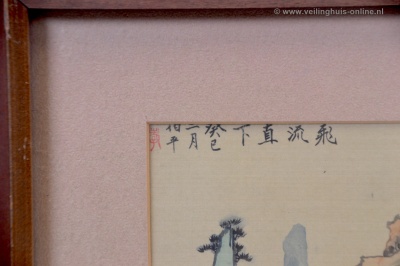 © www.veilinghuis-online.nl
飛流直下
癸巳
二月
伯平